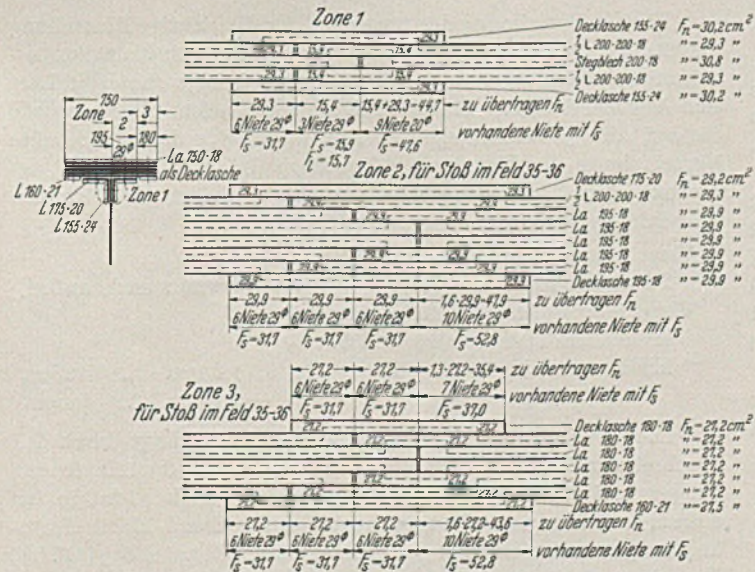 Zone 1
Decklasche 155·24 Fn=30,2cm²
½ L 200·200·18 "=29,3 "
Stegblech 200·18 "=30,8 "
½ L 200·200·18 "=29,3 "
Decklasche 155·24 "=30,2 "
29,3
29,3 15,4 15,4
29,3 15,4 15,4
29,3
29,3 15,4 15,4+29,3=44,7 zu übertragen Fn
6Niete29ᶲ 3Niete29ᶲ 9Niete20ᶲ vorhandene Niete mit FS
FS=31,7 FS=15,9 FS=47,6
Fl=15,7
750
Zone 2 3
195 180
29ᶲ
La 750·18
als Decklasche
L 160·21
L 175·20
L 155·24
Zone 1
Zone 2, für Stoß im Feld 35-36
Decklasche 175·20 Fn=29,2cm²
½ L 200·200·18 "=29,3 "
La 195·18 "=29,9 "
La 195·18 "=29,9 "
La 195·18 "=29,9 "
La 195·18 "=29,9 "
La 195·18 "=29,9 "
Decklasche 195·18 "=29,9 "
29,3 29,3
29,9 29,9
29,9 29,9 29,9
29,9 29,9
29,9 29,9
29,9 29,9
29,9 29,9 29,9 1,6·29,9=47,9 zu übertragen Fn
6Niete29ᶲ 6Niete29ᶲ 6Niete29ᶲ 10Niete29ᶲ vorhandene Niete mit FS
FS=31,7 FS=31,7 FS=31,7 FS=52,8
Zone 3,
für Stoß im Feld 35-36
27,2 27,2 1,3·27,2=35,4 zu übertragen Fn
6Niete29ᶲ 6Niete29ᶲ 7 Niete29ᶲ vorhandene Niete mit FS
FS=31,7 FS=31,7 FS=37,0
Decklasche 180·18 Fn=27,2cm²
La 180·18 "=27,2 "
La 180·18 "=27,2 "
La 180·18 "=27,2 "
La 180·18 "=27,2 "
La 180·18 "=27,2 "
Decklasche 160·21 "=27,5 "
27,2 27,2
27,2 27,2
27,2 27,2
27,2 27,2
27,2
27,2 27,2 27,2 1,6·27,2=43,6 zu übertragen Fn
6Niete29ᶲ 6Niete29ᶲ 6Niete29ᶲ 10Niete29ᶲ vorhandene Niete mit FS
FS=31,7 FS=31,7 FS=31,7 FS=52,8